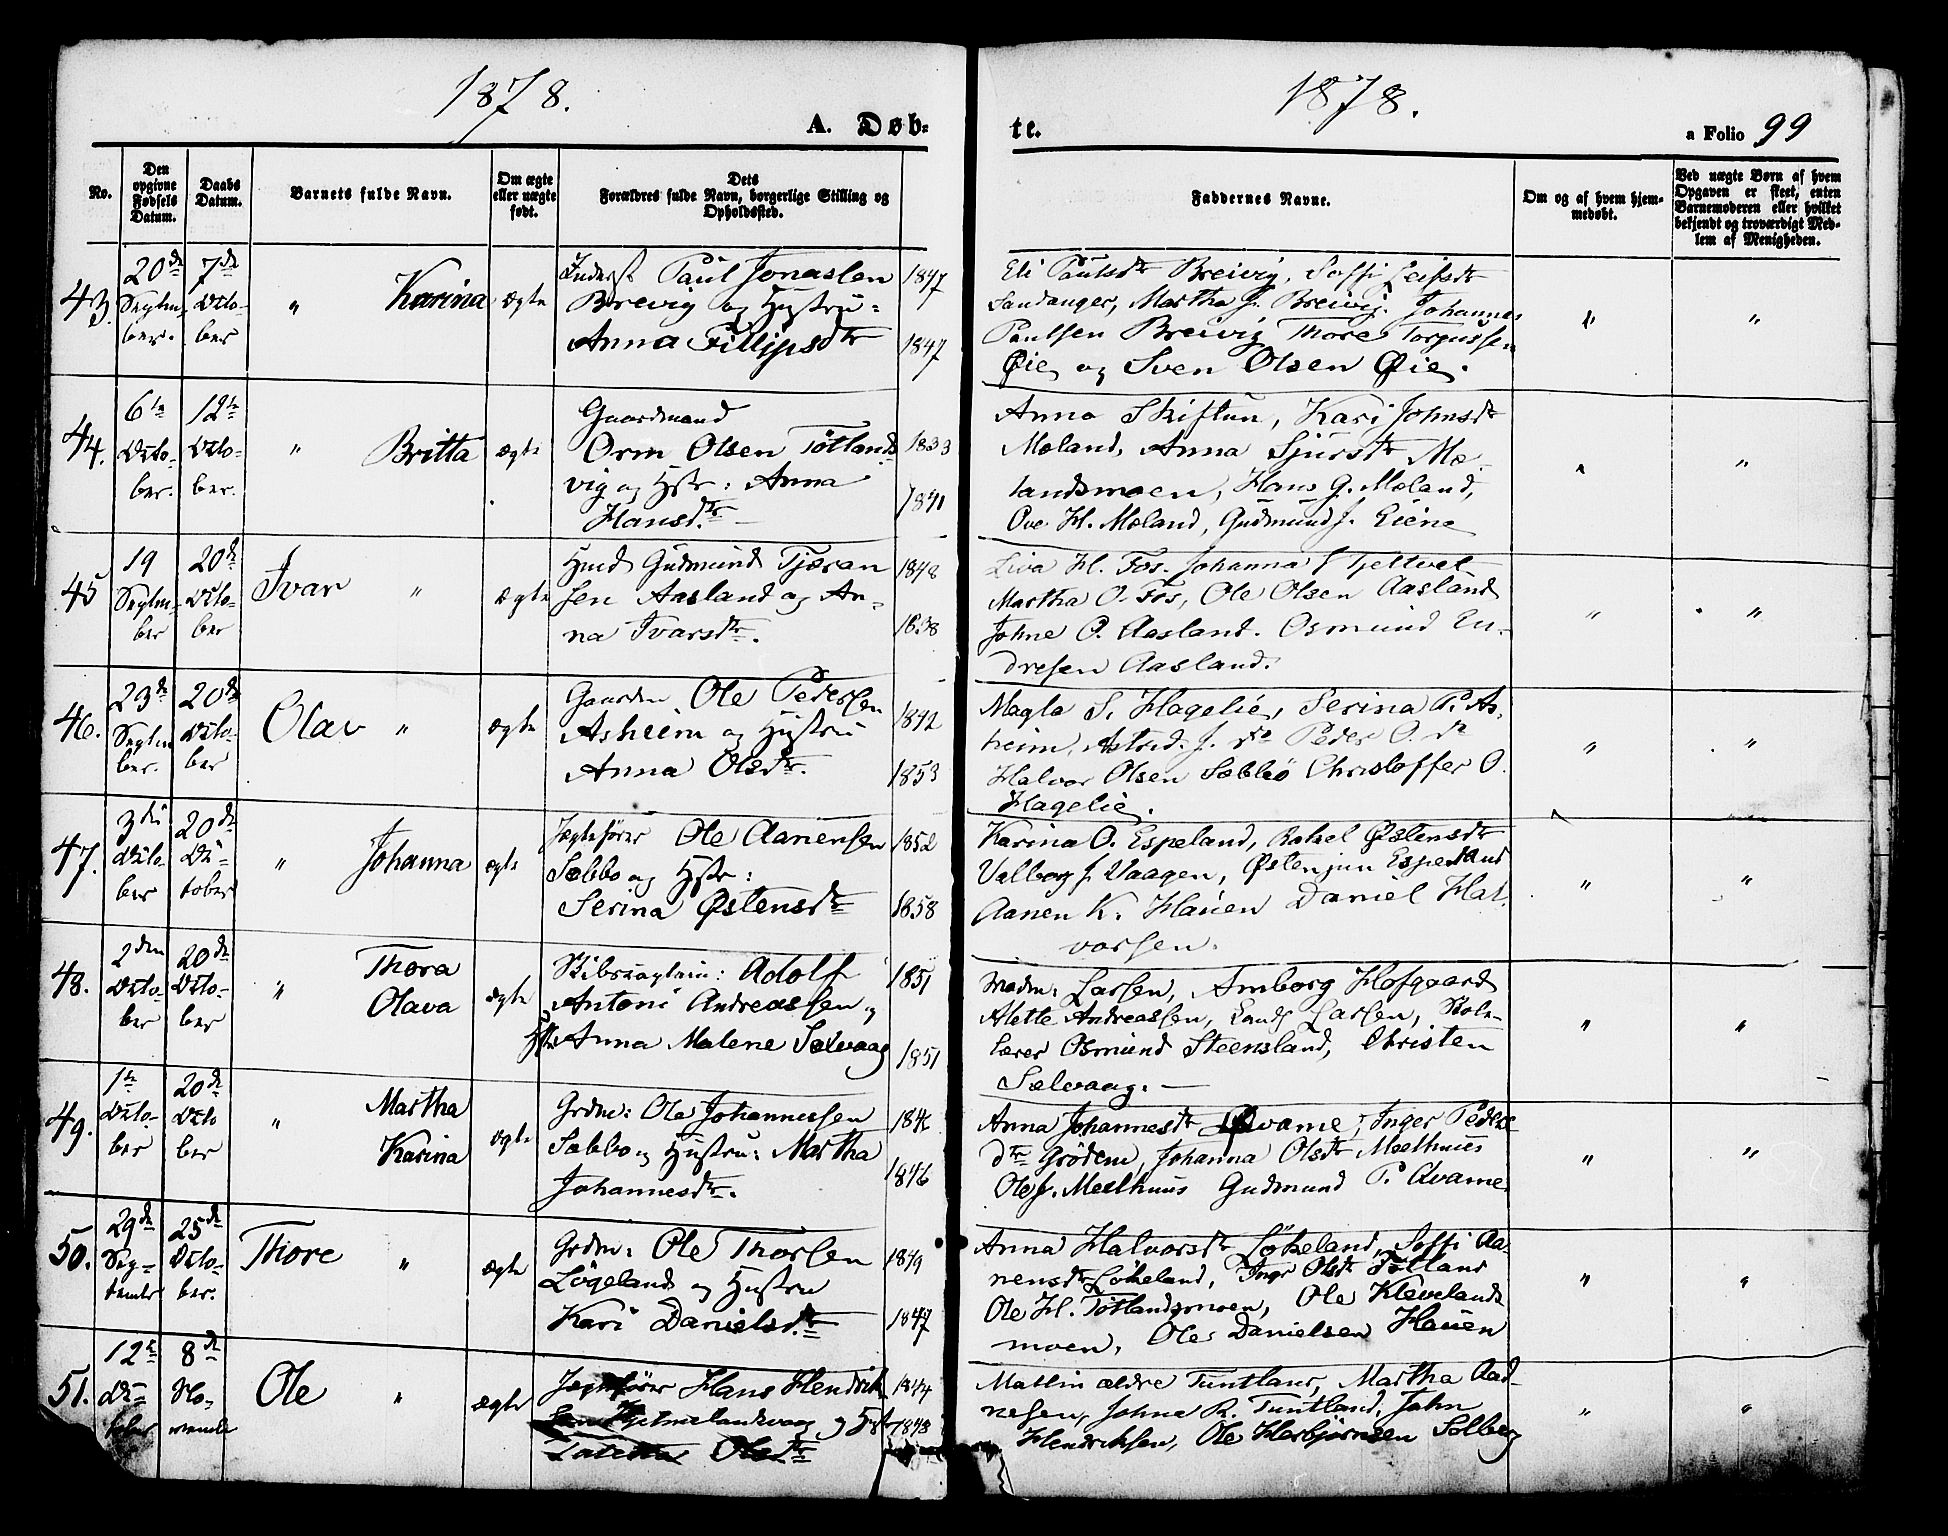 1878.
1878.
A. Døb-
te.
a Folio 99
No.
Den opgivne Fødsels Datum.
Daabs Datum.
Barnets fulde Navn.
Om ægte eller uægte født.
Dets Forældres fulde Navn, borgerlige Stilling og Opholdssted.
Faddernes Navne.
Om og af hvem hjem-
medøbt.
Ved uægte Børn af hvem
Opgaven er skeet, enten
Barnemoderen eller hvilket
bekjendt og troværdigt Med-
lem af Menigheden.
43. 20de Septem ber. 7de Octo- ber " Karina ægte
Inderst Paul Jonassen 1847
Brevig og Hustru:
Anna Fillipsdtr 1847
Eli Paulsdtr Breivig, Soffi Leifsdtr
Sandanger, Martha J. Breivig. Johannes
Paulsen Breivig Thore Torgussen
Øie, og Sven Olsen Øie. " "
44. 6te Octo- ber. 12te Octo- ber. " Britta ægte
Gaardmand
Orm Olsen Tøtlands 1833
vig og Hstr: Anna
Hansd.tr 1841
Anna Skiftun, Kari Johnsdtr
Mæland, Anna Sjursdtr Mæ-
landsmoen, Hans G. Mæland,
Ove H. Mæland, Gudmund J. Eiene " "
45 19 Septem- ber 20de Octo- ber Ivar " ægte
Hmd Gudmund Tjæran 1848
sen Aasland og An-
na Ivarsdtr. 1838
Liva H. Fos. Johanna Tjeltvet
Martha O. Fos, Ole Olsen Aasland
Johne O. Aasland. Osmund En-
dresen Aasland. " "
46. 23de Septem ber. 20de Octo- ber Olav " ægte
Gaardm. Ole Pedersen 1842
Asheim og Hustru
Anna Olsdtr. 1853
Magla S. Hagelie, Serina P. As-
heim, Astrid. J. do Peder O. do
Halvor Olsen Sæbbø Christoffer O.
Hagelie. " "
47. 3die Octo- ber 20de Oc- tober " Johanna ægte
Jægtefører Ole Aanensen 1852
Sæbbo og Hstr:
Serina Østensdtr 1858
Karina O. Espeland, Rakel Østensdtr
Valborg J. Vaagen, Østen jun Espeland
Aanen K. Hauen Daniel Hal-
vorsen. " "
48. 2den Octo- ber 20de Octo- ber " Thora Olava ægte
Skibscaptain: Adolf 1851
Antoni Andreassen og
Hstr Anna Malene Sælvaag 1851
Madm: Larsen, Amborg Hofgaard
Alette Andreassen, Larsen, Skole-
lærer Osmund Steensland, Christen
Sælvaag. " "
49. 1te Octo- ber 20de Octo ber " Martha Karina ægte
Grdm: Ole Johannessen
Sæbbo og Hustru: Martha 1846
Johannesdtr.
Anna Johannesdtr Qvame, Inger Peders
dtr Grødem, Johanna Olsdtr Meelhuus
Ole J. Meelhuus Gudmund P. Qvame. " "
50. 29de Sep- tember 25de Octo- ber. Thore " ægte
Grdm: Ole Thorsen 1849
Løgeland og Hustru
Kari Danielsd.tr 1847
Anna Halvorsdtr Løkeland, Soffi Aa-
nensdtr Løkeland, Inger Olsdtr Tøtland
Ole H. Tøtlandsmoen, Ole Klevelands
moen, Ole Danielsen Hauen " "
51. 12te Oc- tober 8de No- vember Ole " ægte
Jægtefører Hans Hendrik 1844
Hjelmelandsvaag og 1848
Olsdtr
Mallin ældre Tuntland, Martha Aad-
nesen, Johna R. Tuntland, John
Hendriksen, Ole Herbjørnsen Solberg " "